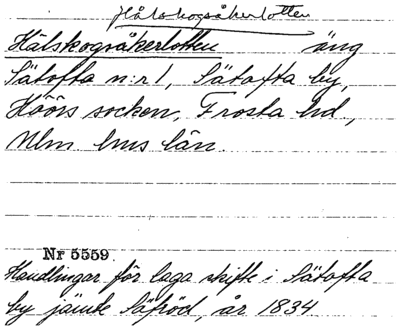 Hålskogsåkerlotten
Hålskogsåkerlotten äng
Sätofta n:r 1, Sätofta by,
Höörs socken, Frosta hd,
Mlm hus län.
Nr 5559
Handlingar för laga skifte i Sätofta
by jämte Säfröd, år 1834